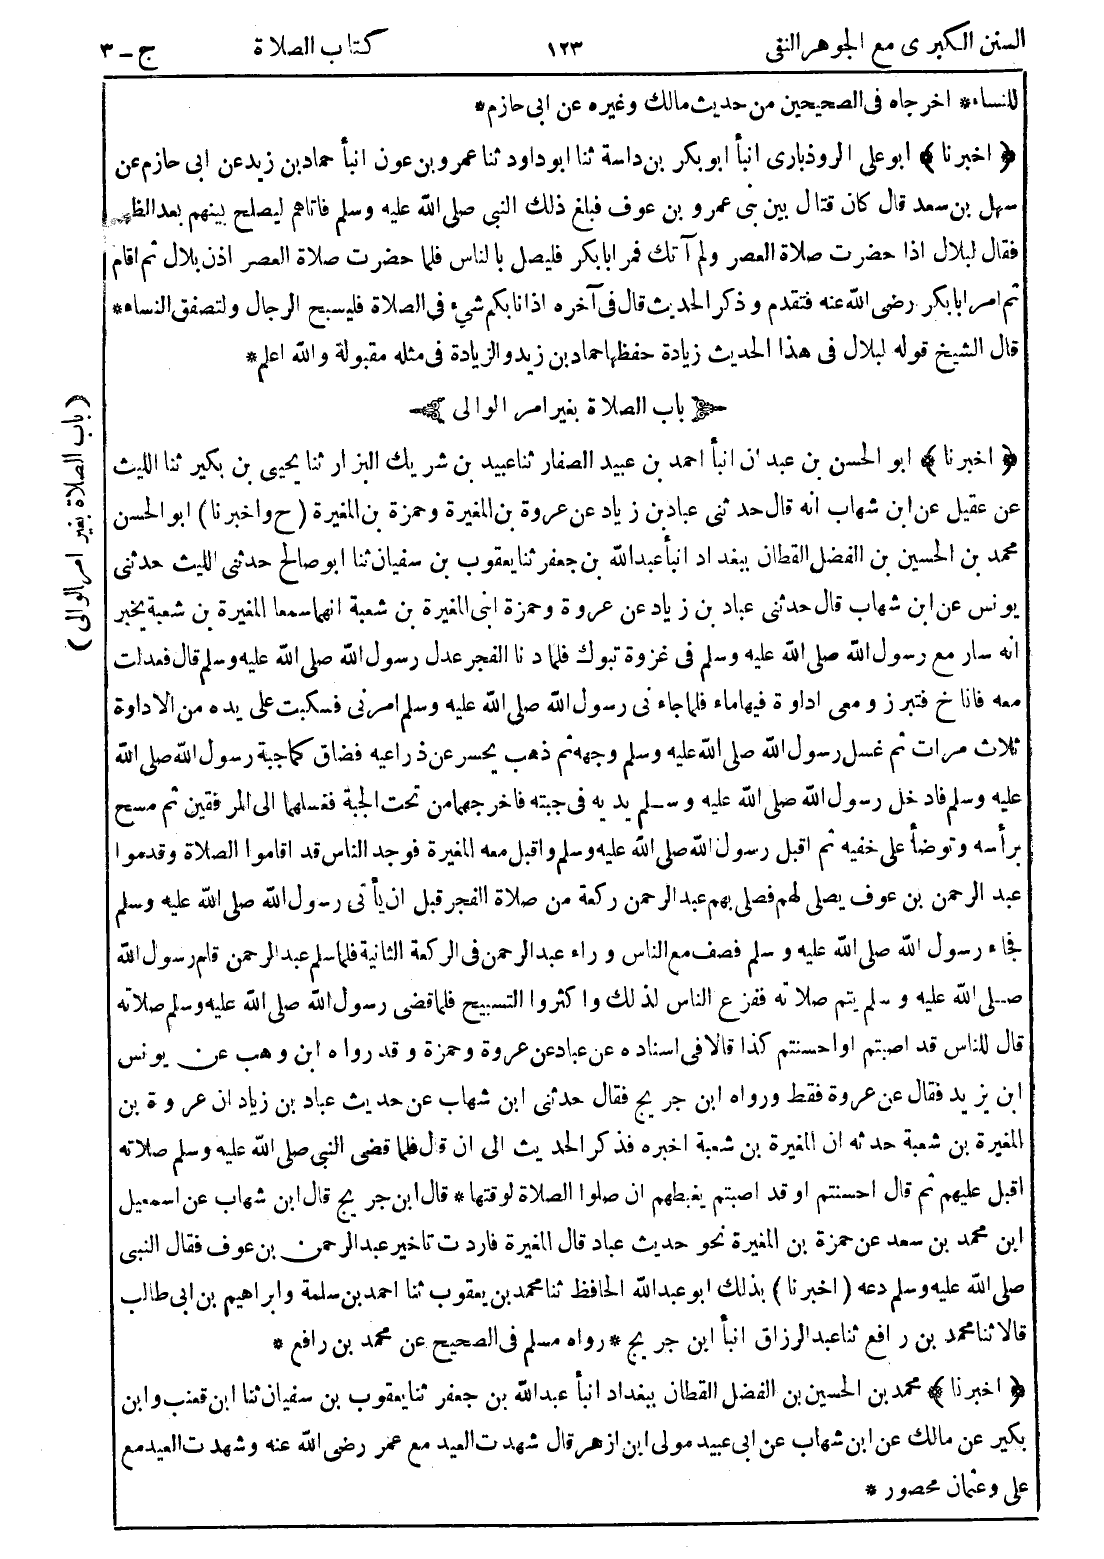 السنن الكبرى مع الجوهر النقى ١٢٣ كتاب الصلاة ج - ٣
للنساء* اخرجاه فى الصحيحين من حديث مالك وغيره عن ابى حازم*
﴿ اخبرنا ﴾ ابو على الروذبارى انبأ ابو بكر بن داسة ثنا ابو داود ثنا عمرو بن عون انبأ حماد بن زيد عن ابى حازم عن
سهل بن سعد قال كان قتال بين بنى عمرو بن عوف فبلغ ذلك النبى صلى الله عليه وسلم فاتاهم ليصلح بينهم بعد الظهر
فقال لبلال اذا حضرت صلاة العصر ولم آتك فمر ابا بكر فليصل بالناس فلما حضرت صلاة العصر اذن بلال ثم اقام
ثم امر ابا بكر رضى الله عنه فتقدم وذكر الحديث قال فى آخره اذا نابكم شىء فى الصلاة فليسبح الرجال ولتصفق النساء*
قال الشيخ قوله لبلال فى هذا الحديث زيادة حفظها حماد بن زيد والزيادة فى مثله مقبولة والله اعلم*
باب الصلاة بغير امر الوالى
(باب الصلاة بغير امر الوالى)
﴿ اخبرنا ﴾ ابو الحسن بن عبدان انبأ احمد بن عبيد الصفار ثنا عبيد بن شريك البزار ثنا يحيى بن بكير ثنا الليث
عن عقيل عن ابن شهاب انه قال حدثنى عباد بن زياد عن عروة بن المغيرة وحمزة بن المغيرة (ح واخبرنا) ابو الحسن
محمد بن الحسين بن الفضل القطان ببغداد انبأ عبد الله بن جعفر ثنا يعقوب بن سفيان ثنا ابو صالح حدثنى الليث حدثنى
يونس عن ابن شهاب قال حدثنى عباد بن زياد عن عروة وحمزة ابنى المغيرة بن شعبة انهما سمعا المغيرة بن شعبة يخبر
انه سار مع رسول الله صلى الله عليه وسلم فى غزوة تبوك فلما دنا الفجر عدل رسول الله صلى الله عليه وسلم قال فعدلت
معه فاناخ فتبرز ومعى اداوة فيها ماء فلما جاءنى رسول الله صلى الله عليه وسلم امرنى فسكبت على يده من الاداوة
ثلاث مرات ثم غسل رسول الله صلى الله عليه وسلم وجهه ثم ذهب يحسر عن ذراعيه فضاق كما جبة رسول الله صلى الله
عليه وسلم فادخل رسول الله صلى الله عليه وسلم يديه فى جبته فاخرجهما من تحت الجبة فغسلهما الى المرفقين ثم مسح
برأسه وتوضأ على خفيه ثم اقبل رسول الله صلى الله عليه وسلم واقبل معه المغيرة فوجد الناس قد اقاموا الصلاة وقدموا
عبد الرحمن بن عوف يصلى لهم فصلى بهم عبد الرحمن ركعة من صلاة الفجر قبل ان يأتى رسول الله صلى الله عليه وسلم
فجاء رسول الله صلى الله عليه وسلم فصف مع الناس وراء عبد الرحمن فى الركعة الثانية فلما سلم عبد الرحمن قام رسول الله
صلى الله عليه وسلم يتم صلاته ففزع الناس لذلك واكثروا التسبيح فلما قضى رسول الله صلى الله عليه وسلم صلاته
قال للناس قد اصبتم او احسنتم كذا قالا فى اسناده عن عباد عن عروة وحمزة وقد رواه ابن وهب عن يونس
ابن يزيد فقال عن عروة فقط ورواه ابن جريج فقال حدثنى ابن شهاب عن حديث عباد بن زياد ان عروة بن
المغيرة بن شعبة حدثه ان المغيرة بن شعبة اخبره فذكر الحديث الى ان قال فلما قضى النبى صلى الله عليه وسلم صلاته
اقبل عليهم ثم قال احسنتم او قد اصبتم يغبطهم ان صلوا الصلاة لوقتها* قال ابن جريج قال ابن شهاب عن اسمعيل
ابن محمد بن سعد عن حمزة بن المغيرة نحو حديث عباد قال المغيرة فاردت تاخير عبد الرحمن بن عوف فقال النبى
صلى الله عليه وسلم دعه (اخبرنا) بذلك ابو عبد الله الحافظ ثنا محمد بن يعقوب ثنا احمد بن سلمة وابراهيم بن ابى طالب
قالا ثنا محمد بن رافع ثنا عبد الرزاق انبأ ابن جريج* رواه مسلم فى الصحيح عن محمد بن رافع *
﴿ اخبرنا ﴾ محمد بن الحسين بن الفضل القطان ببغداد انبأ عبد الله بن جعفر ثنا يعقوب بن سفيان ثنا ابن قعنب وابن
بكير عن مالك عن ابن شهاب عن ابى عبيد مولى ابن ازهر قال شهدت العيد مع عمر رضى الله عنه وشهدت العيد مع
على وعثمان محصور *